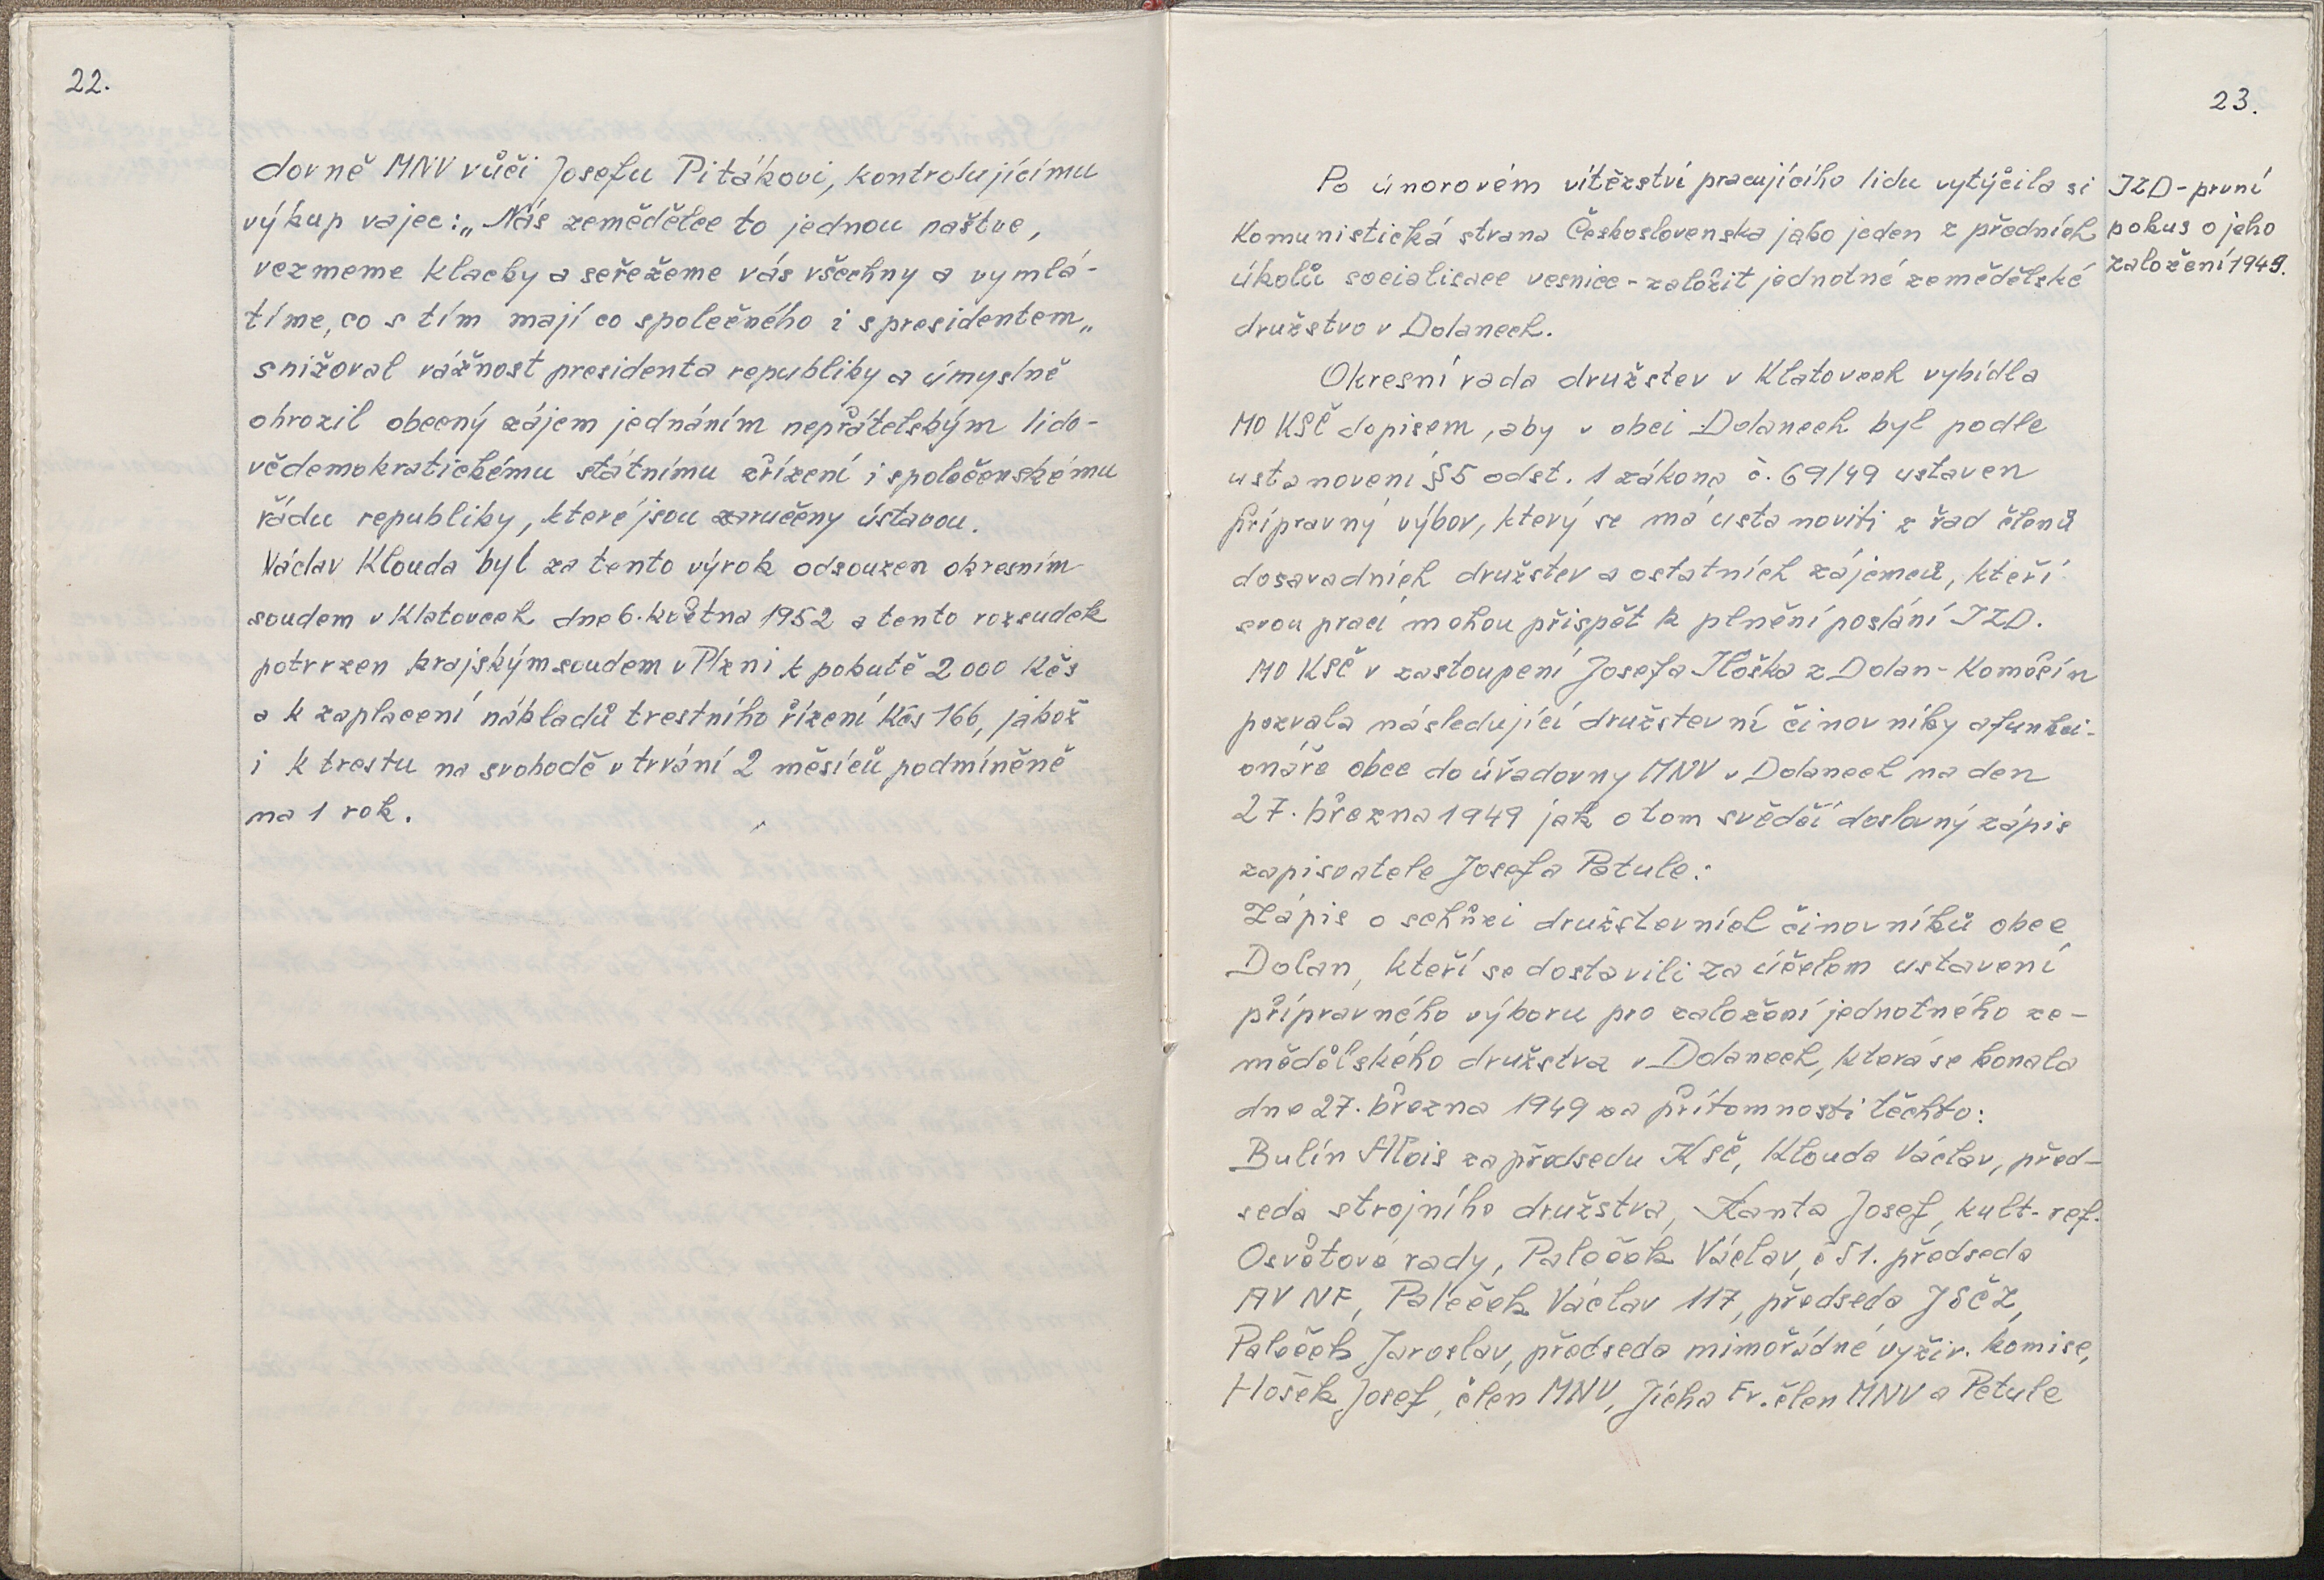 22.
dovně MNV vůči Josefu Pitákovi, kontrolujícímu
výkup vajec: „Nás zemědělce to jednou naštve,
vezmeme klacky a seřežeme vás všechny a vymlá-
tíme, co s tím mají co společného i s presidentem„
snižoval vážnost presidenta republiky a úmyslně
ohrozil obecný zájem jednáním nepřátelským lido-
vědemokratickému státnímu zřízení i společenskému
řádu republiky, které jsou zaručeny ústavou.
Václav Klouda byl za tento výrok odsouzen okresním
soudem v Klatovech dne 6. května 1952 a tento rozsudek
potvrzen krajským soudem v Plzni k pokutě 2000 Kčs
a k zaplacení nákladů trestního řízení Kčs 166, jakož
i k trestu na svobodě v trvání 2 měsíců podmíněně
na 1 rok.
23.
Po únorovém vítězství pracujícího lidu vytýčila si
Komunistická strana Československa jako jeden z předních
úkolů socialisace vesnice - založit jednotné zemědělské
družstvo v Dolanech.
JZD - první
pokus o jeho
založení 1949.
Okresní rada družstev v Klatovech vybídla
MO KSČ dopisem, aby v obci Dolanech byl podle
ustanovení § 5 odst. 1 zákona č. 69/49 ustaven
přípravný výbor, který se má ustanoviti z řad členů
dosavadních družstev a ostatních zájemců, kteří
svou prací mohou přispět k plnění poslání JZD.
MO KSČ v zastoupení Josefa Hoška z Dolan - Komošín
pozvala následující družstevní činovníky a funkci-
onáře obce do úřadovny MNV v Dolanech na den
27. března 1949 jak o tom svědčí doslovný zápis
zapisovatele Josefa Petule:
Zápis o schůzi družstevních činovníků obce
Dolan, kteří se dostavili za účelem ustavení
přípravného výboru pro založení jednotného ze-
mědělského družstva v Dolanech, která se konala
dne 27. března 1949 za přítomnosti těchto:
Bulín Alois za předsedu KSČ, Klouda Václav, před-
seda strojního družstva, Kanta Josef, kult. ref.
Osvětové rady, Paleček Václav, č 51. předseda
AV NF, Paleček Václav 117, předseda JSČZ,
Paleček Jaroslav, předseda mimořádné vyživ. komise,
Hošek Josef, člen MNV, Jícha Fr. člen MNV a Petule